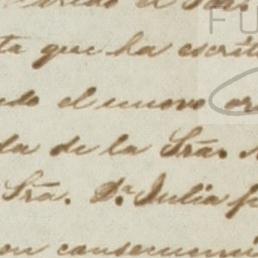 ta que ha escrit
do el nuevo or
da de la Sra.
Sra. Da. Julia f
on consecuenci